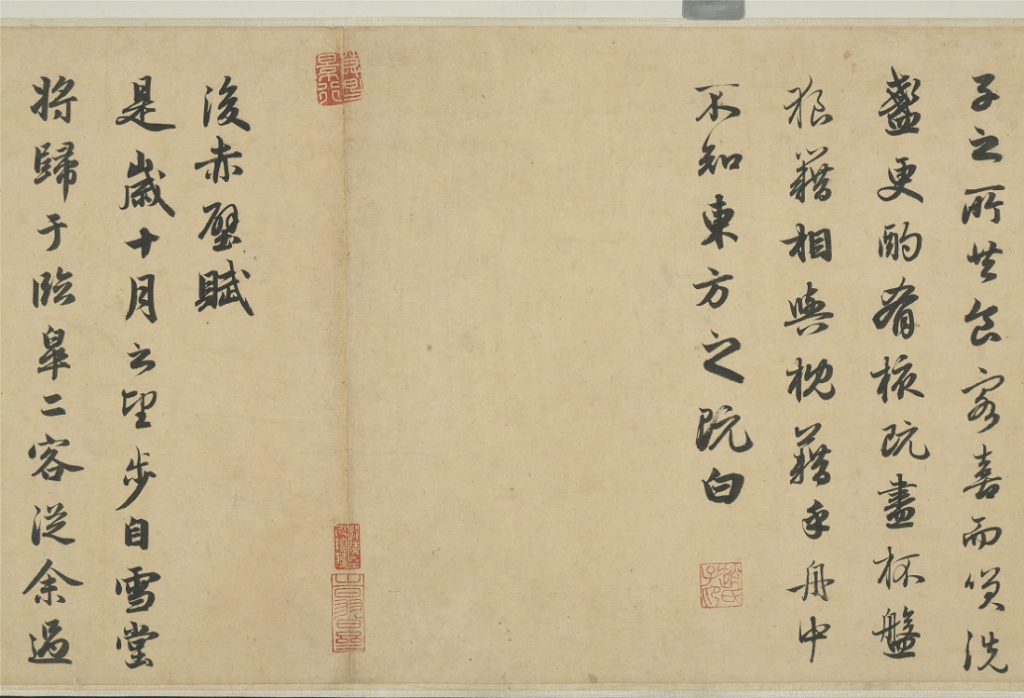 子之所共食客喜而笑洗
盞更酌肴核既盡杯盤
狼籍相與枕藉乎舟中
不知東方之既白
趙氏子昂
後赤壁賦
是歲十月之望步自雪堂
將歸于臨皋二客從余過